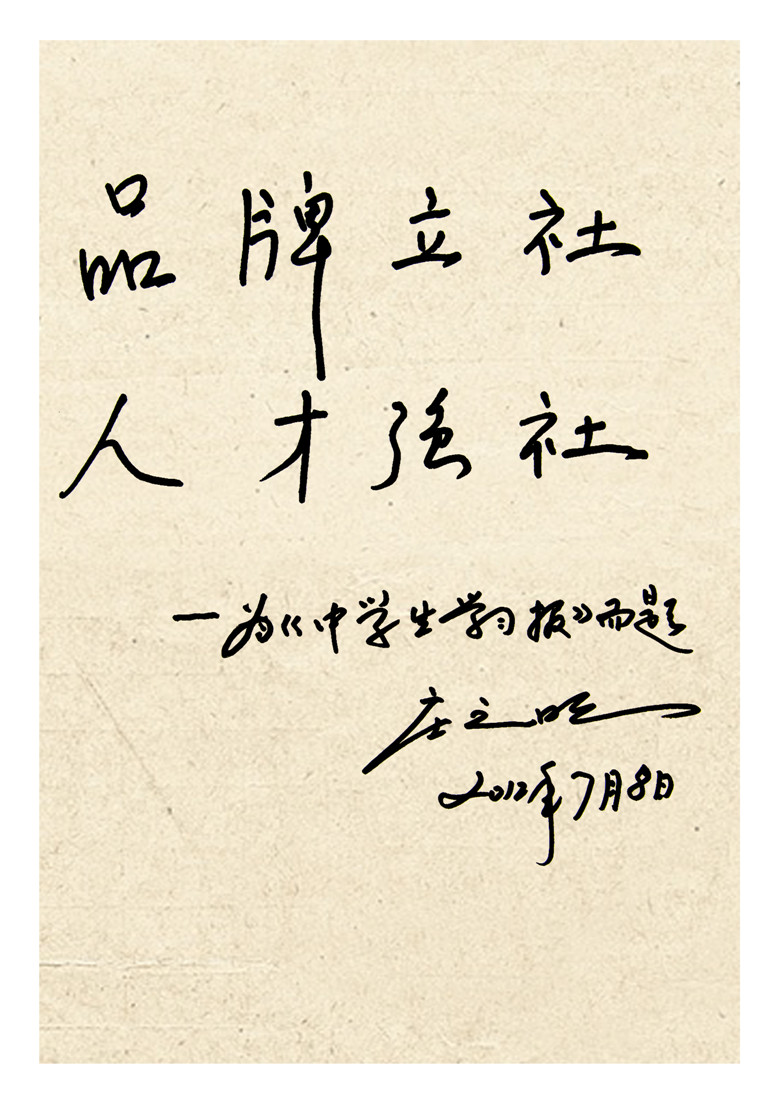 品牌立社
人才强社
—为《中学生学习报》而题
庄之明
2012年7月8日